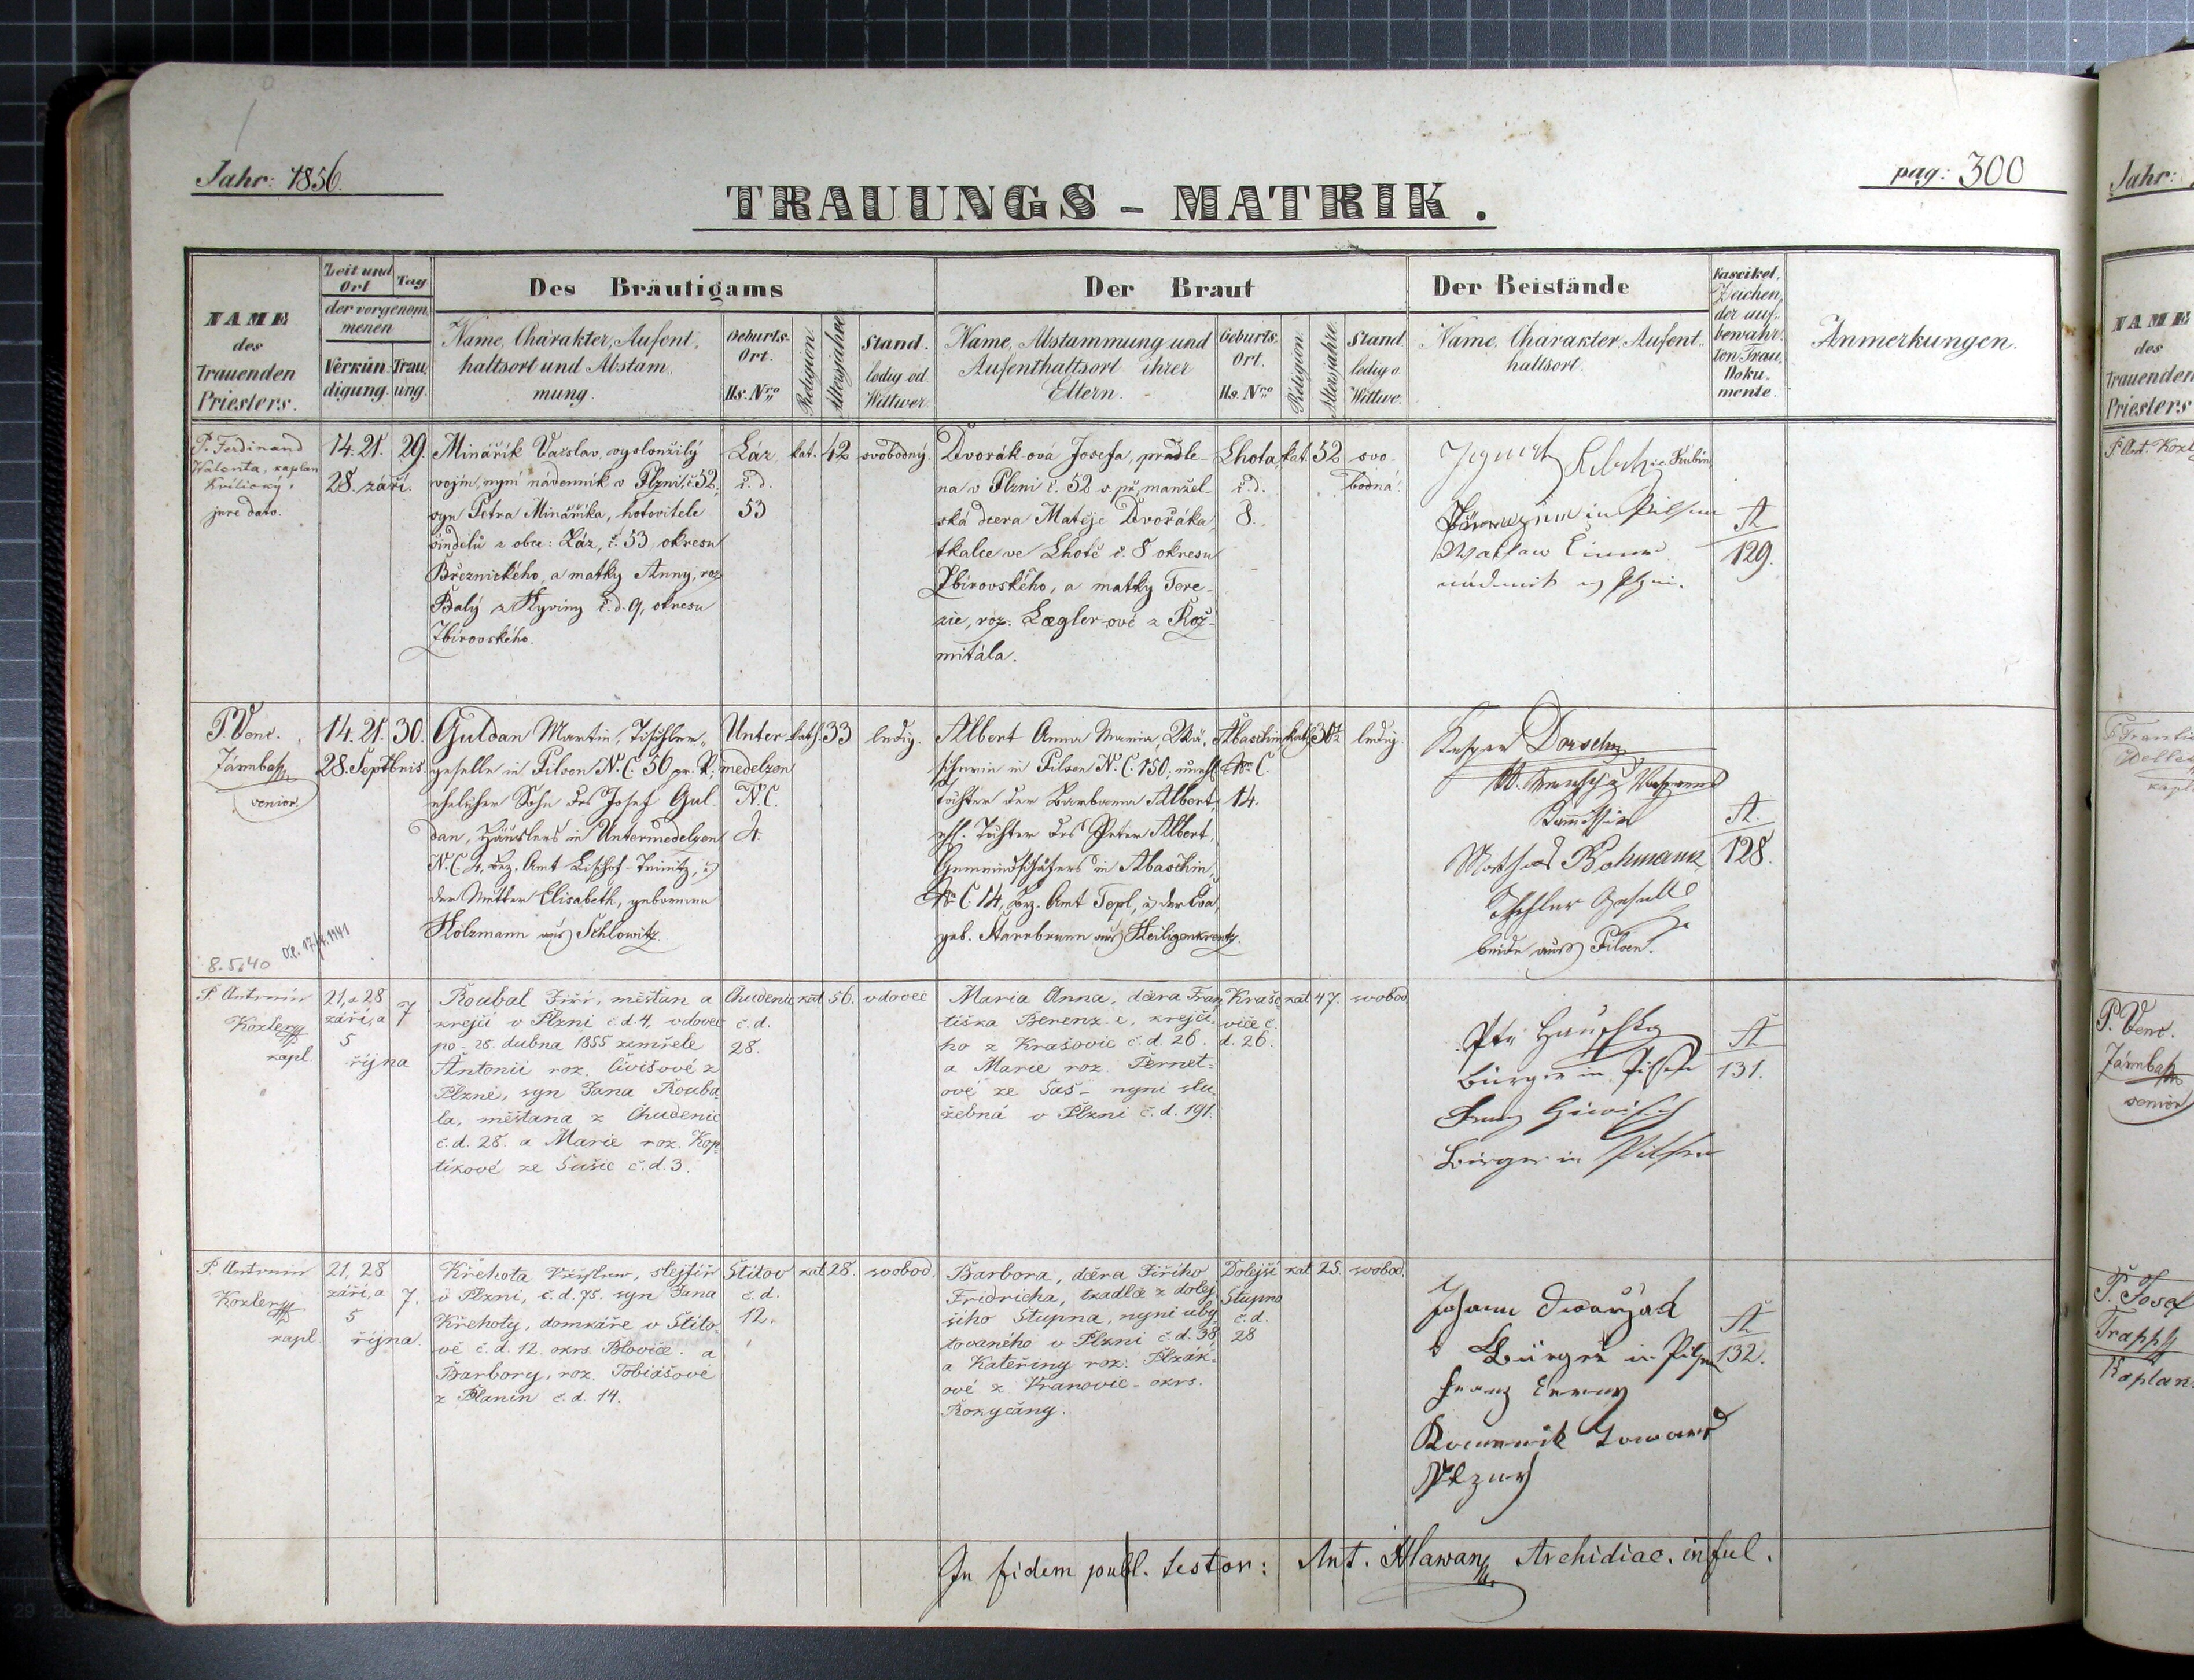 Jahr: 1856.
pag: 300
TRAUUNGS - MATRIK.
NAME
des
Trauenden
Priesters.
Zeit und Ort
Tag
der vorgenom
menen
Verkün
digung.
Trau
ung.
Des Bräutigams
Name, Charakter, Aufent,
haltsort und Abstam,,
mung.
Geburts-
Ort.
Hs. Nro
Religion.
Altersjahre
Stand.
ledig od.
Wittwer.
Der Braut
Name, Abstammung und
Aufenthaltsort ihrer
Eltern.
Geburts
Ort.
Hs. Nro
Religion.
Altersjahre
Stand
ledig o
Wittwe.
Der Beistände
Name, Charakter, Aufent,,
haltsort.
Fascikel,
Zeichen,
der auf-
bewahr-
ten Trau,
Doku,,
mente.
Anmerkungen.
P. Ferdinand
Walenta, kaplan
Králický,
jure dato.
14. 21.
28. září.
29.
Minářík Vácslav, vysloužilý
vojín, nyní nádenník v Plzni, č. 52,
syn Petra Minářika, hotovitele
šindelů z obce: Láz, č. 53, okresu
Březnického, a matky Anny, roz
Balý z Kyviny č. d. 9, okresu
Zbirovského.
Láz
č. d.
53
kat.
42
svobodný.
Dvořák-ová Josefa, prádle-
na v Plzni č. 52 v. př., manžel-
ská dcera Matěje Dvořáka,
tkalce ve Lhotě č. 8 okresu
Zbirovského, a matky Tere-
zie, roz. Lægler-ové z Rož-
mitála.
Lhota,
č. d.
8.
kat.
52
svo-
bodná.
in Pilsen
A
129.
P. Venc.
Járnbach
senior.
14. 21.
28. Septbris.
30.
Guldan Martin, Tischler-
geselle in Pilsen N. C. 50 pr. V,
ehelicher Sohn des Josef Gul-
dan, Häuslers in Untermedelzen
N. C. 4, Bez. Amt Bischof-Teinitz, u
der Mutter Elisabeth, geborenen
Holzmann aus Schlowitz.
Unter
medelzen
N. C.
4.
kath
33
ledig.
Albert Anna Maria,
in Pilsen N. C. 150, unehl
Tochter der Barbara Albert,
ehl. Tochter des Peter Albert,
in Abaschin,
Nr C. 14, Bez. Amt Tepl, u der Eva,
geb. Starebrunn aus Heiligenkreutz.
Abaschin
Nr. C.
14.
kath
ledig.
Kaspar Dorschn
Mathias Bohmann
Tischler Geselle
beide aus Pilsen.
A.
128.
8. 5. 40
17/4. 1941
P. Antonín
Kozler
kapl.
21, a 28
září, a
5
října
7
Roubal Jiří, měšťan a
krejčí v Plzni č. d. 4, vdovec
po 25. dubna 1855 zemřelé
Antonii roz. Čivišové z
Plzně, syn Jana Rouba-
la, měšťana z Chudenic
č. d. 28. a Marie roz. Kop-
tíkové ze Sušic č. d. 3.
Chudenic
č. d.
28.
kat
56.
vdovec
Maria Anna, dcera Fran
tiška Berenz-e, krejčí-
ho z Krašovic č. d. 26.
a Marie roz. Pernet-
ové ze Sas - nyní slu
žebná v Plzni č. d. 191.
Krašo
vice č.
d. 26.
kat
47.
svobod.
Bürger in Pilsen
Bürger in Pilsen
A
131.
P. Antonín
Kozler
kapl.
21, 28
září, a
5
října.
7.
Křehota, slejfíř
v Plzni, č. d. 75. syn Jana
Křehoty, domkáře v Štíto-
vé č. d. 12. okrs. Blovice. a
Barbory, roz. Tobiášové
z Planin č. d. 14.
Štítov
č. d.
12.
kat
28.
svobod.
Barbora, dcera Jiřího
Fridricha, tkadlce z dolej
šího Stupna, nyní uby
tovaného v Plzni č. d. 38
a Kateřiny roz. Plzák-
ové z Vranovic - okrs.
Rokycany.
Dolejší
Stupno
č. d.
28
kat
25.
svobod.
Johann Dwořzak
Bürger in Pilsen
Franz
A
132.
In fidem publ. testor: Ant. Hlawan Archidiac. inful.
Jahr:
NAME
des
Trauenden
Priesters
P. Ant. Kozl
P. Venc.
Járnbach
senior
P. Josef
Trappl
Kaplan